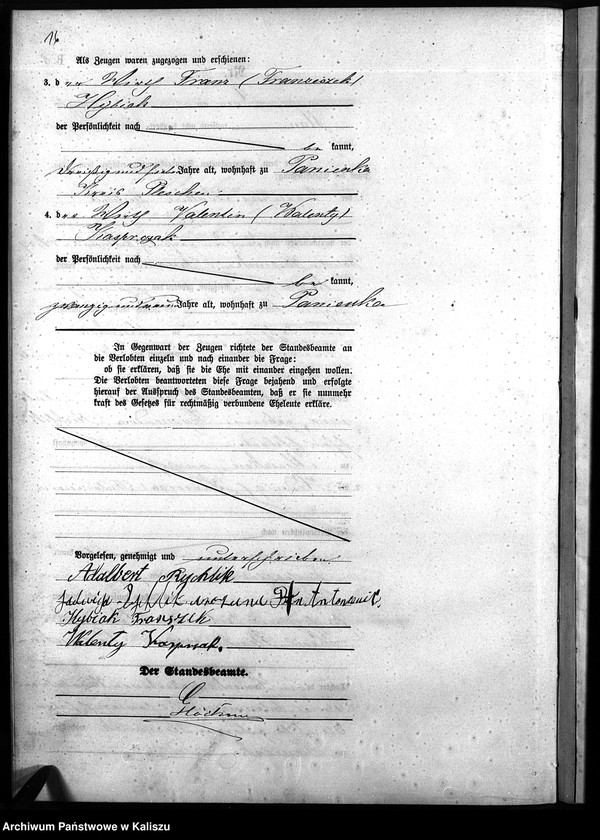 16
Als Zeugen waren zugezogen und erschienen:
3. der Wirth Franz (Franziszek)
Hybiak
der Persönlichkeit nach
be kannt,
Jahre alt, wohnhaft zu Panienka
Kreis Pleschen
4. der Wirth Valentin (Walenty)
Kasprzak
der Persönlichkeit nach
be kannt,
zwanzig und neun Jahre alt, wohnhaft zu Panienka
In Gegenwart der Zeugen richtete der Standesbeamte an
die Verlobten einzeln und nach einander die Frage:
ob sie erklären, daß sie die Ehe mit einander eingehen wollen.
Die Verlobten beantworteten diese Frage bejahend und erfolgte
hierauf der Ausspruch des Standesbeamten, daß er sie nunmehr
kraft des Gesetzes für rechtmäßig verbundene Eheleute erkläre.
Vorgelesen, genehmigt und unterschrieben
Adalbert Rychlik
Hybiak
Walenty
Der Standesbeamte.
Archiwum Państwowe w Kaliszu